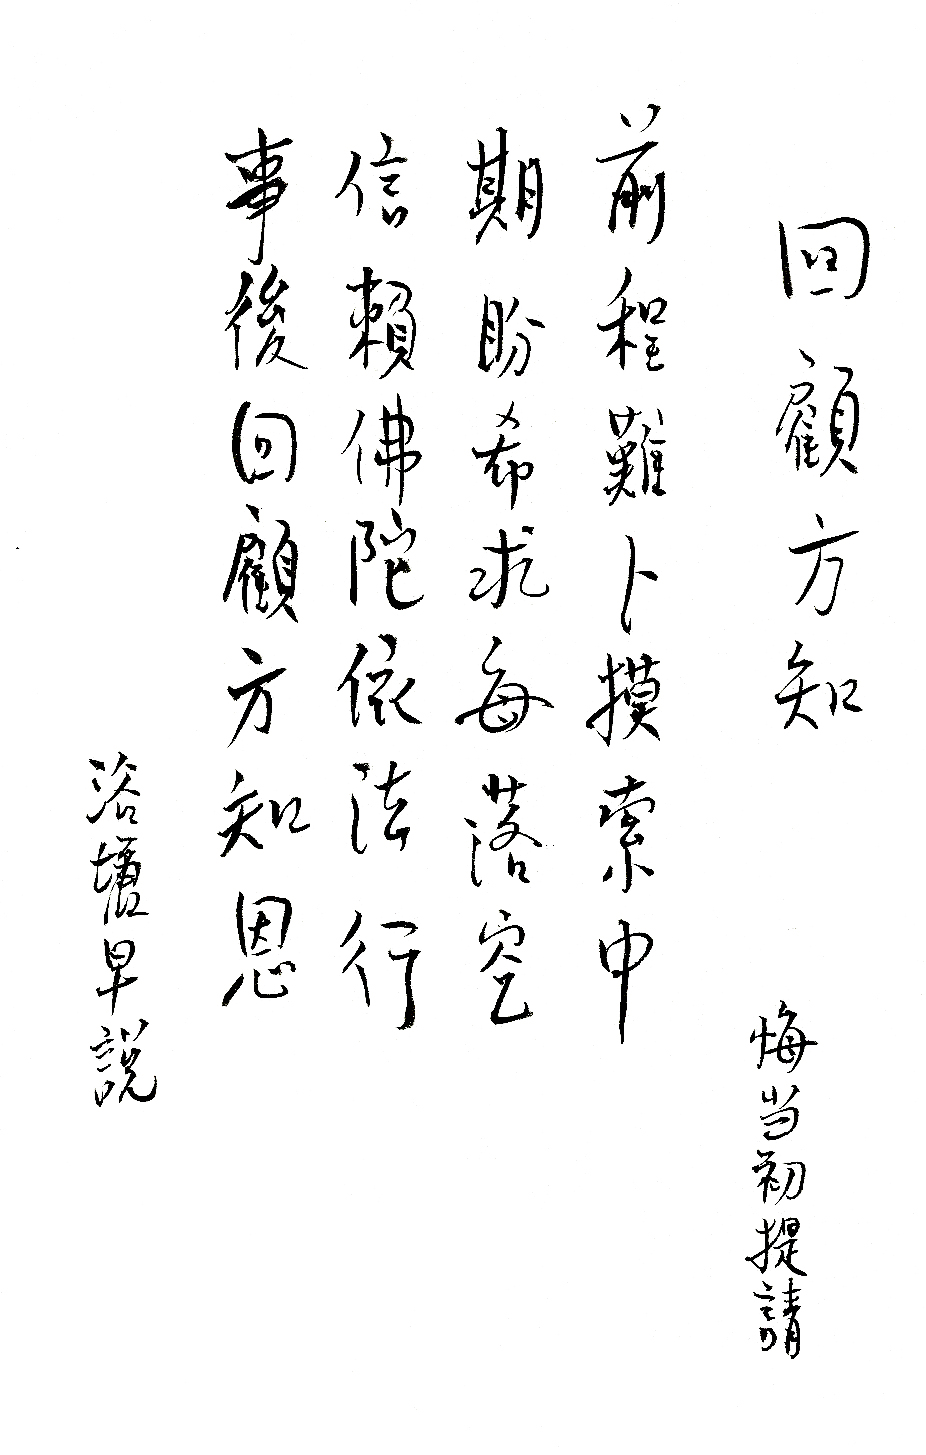 回顧方知
悔当初提請
前程難卜摸索中
期盼希求每落空
信賴佛陀依法行
事後回顧方知恩
浴壚早説